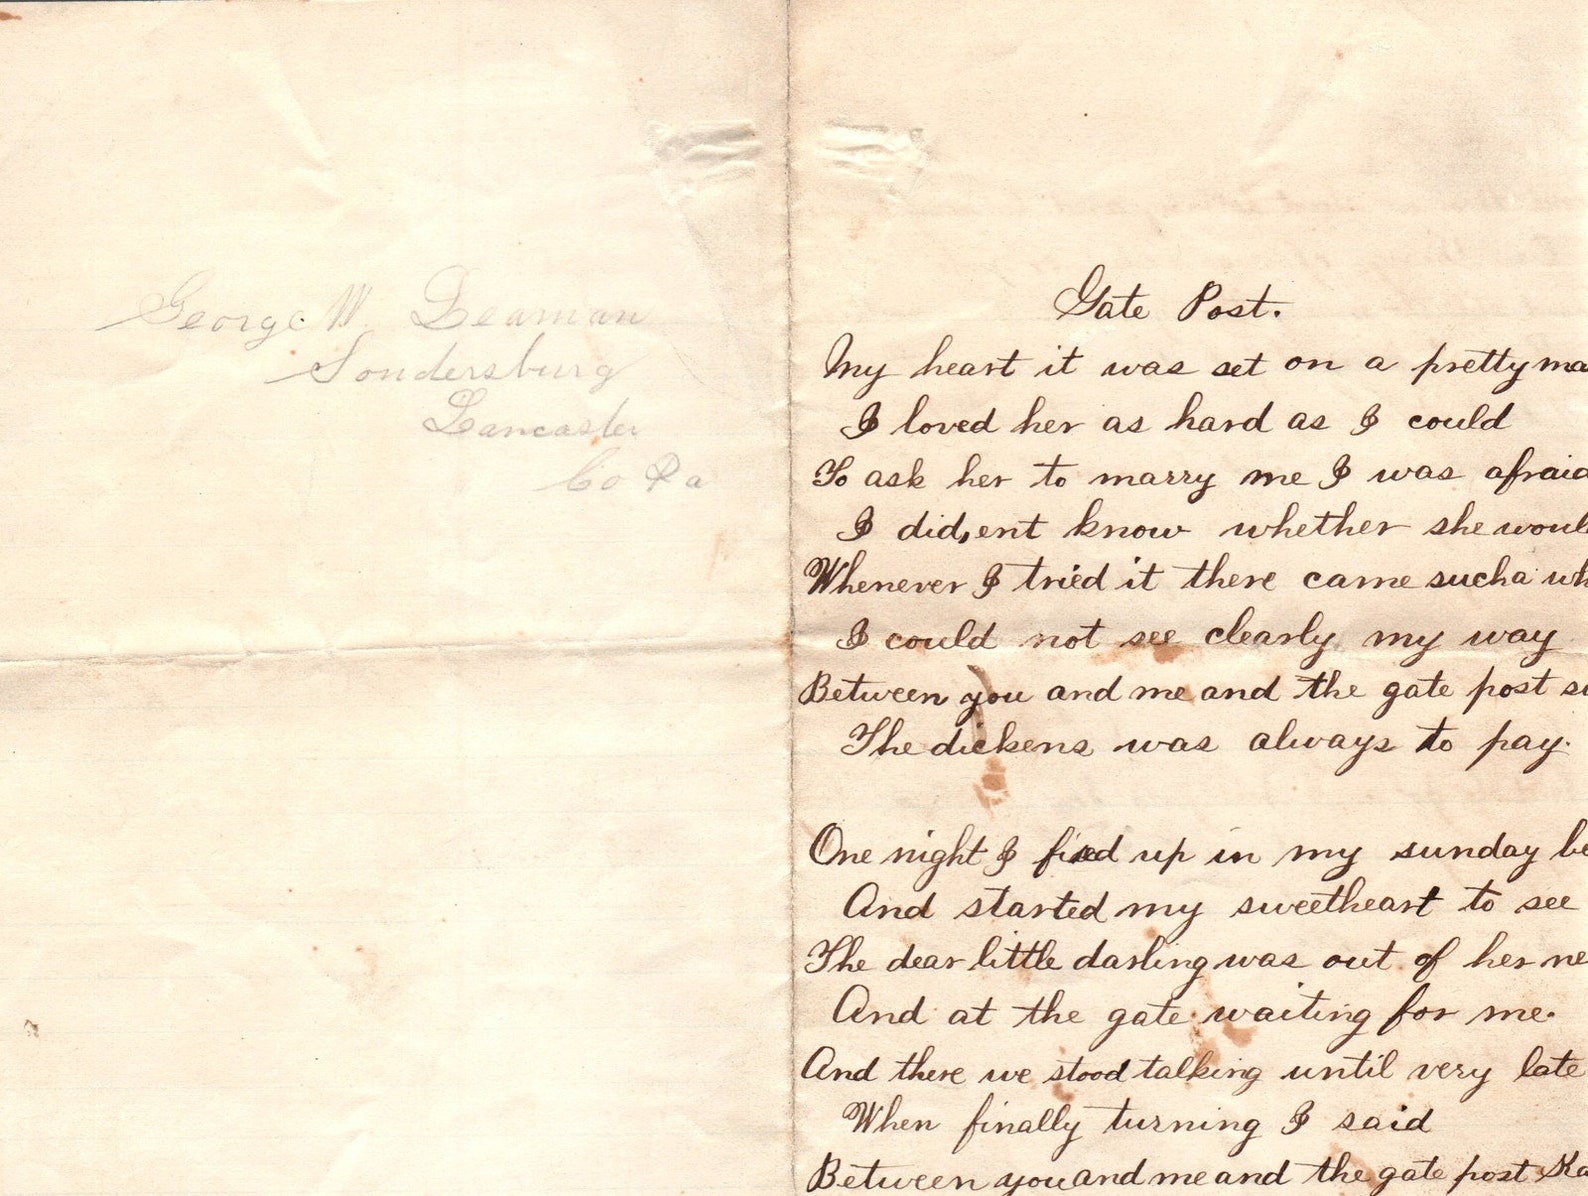 George W Leaman
Sondersburg
Lancaster
Co Pa
Gate Post.
My heart it was set on a pretty ma
I loved her as hard as I could
To ask her to marry me I was afraid
I did,ent know whether she woul
Whenever I tried it there came sucha wh
I could not see clearly my way
Between you and me and the gate post su
The dickens was always to pay.
One night I fixed up in my sunday be
And started my sweetheart to see
The dear little darling was out of her ne
And at the gate waiting for me.
And there we stood talking until very late
When finally turning I said
Between you and me and the gate post Ka